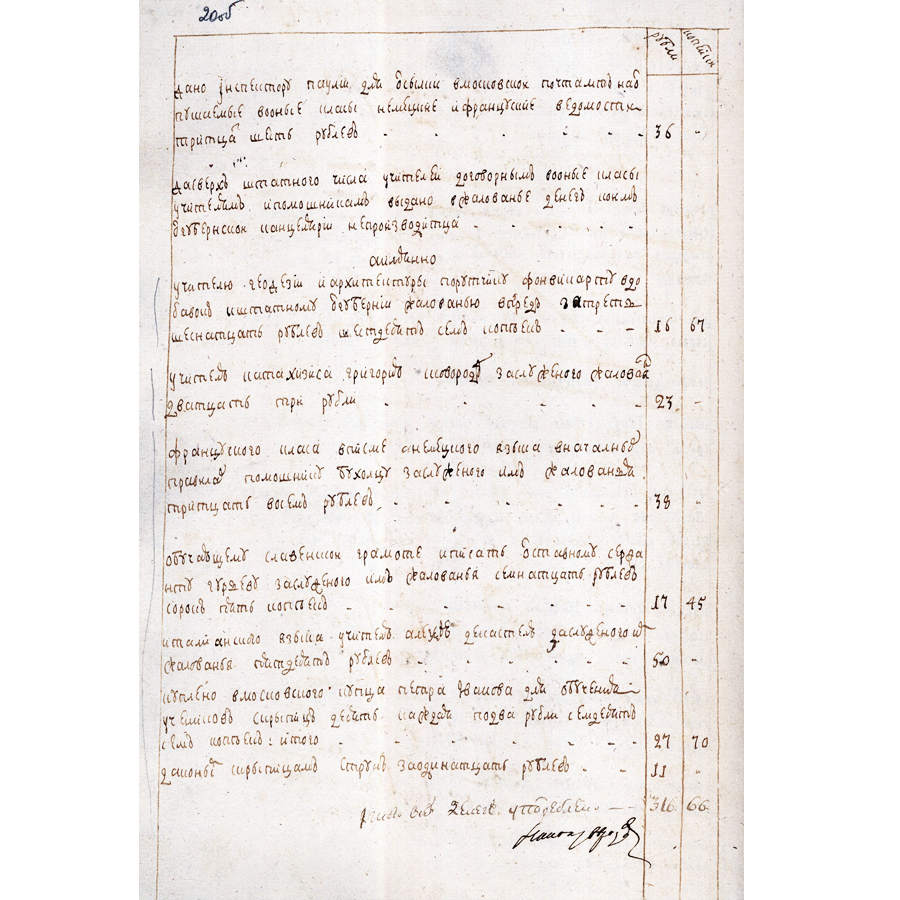 20об
рубли копѣики
дано Інспектору паулй для Ѿсылки вмосковской почтамтъ за
пушаемые вооные класы немецкие ифранцуские ведомости
тритцат шесть рублевъ 36
дасверхъ штатного числа учителей договорнымъ вооные класы
учителямъ ипомошникамъ выдано вжалованье денегъ коимъ
Ѿгубернской канцелярїи непроизводитца
аимянно
учителю геодезїи иархитектуры порутчику фонвикарту вдо
бавокъ кштатному Ѿгубернїи жалованью впредь затреть
шеснатцать рублевъ шестдесятъ семъ копѣекъ 16 67
учителю катахизиса григорїю сковороде заслуженого жалованя
дватцать три рубли 23
французкого класа втеме анемецкого языка вначальныхъ
правилах помошнику бухолцу заслуженого имъ жалованья
тритцать восемъ рублевъ 38
обучающему славенской грамоте иписать Ѿставному сержа
нту гуржеву заслуженого имъ жалованья семнатцать рублевъ
сорокъ пять копѣекъ 17 45
италианского языка учителю заслуженого
жалованья пятдесятъ рублевъ 50
куплено вмосковского купца петра Іванова для обучения
учениковъ скрыпицъ десять каждая подва рубли семдесятъ
семъ копѣекъ итого 27 70
коными скрыпицамъ струнъ заодинатцать рублевъ 11
денегъ употреблено 316 66